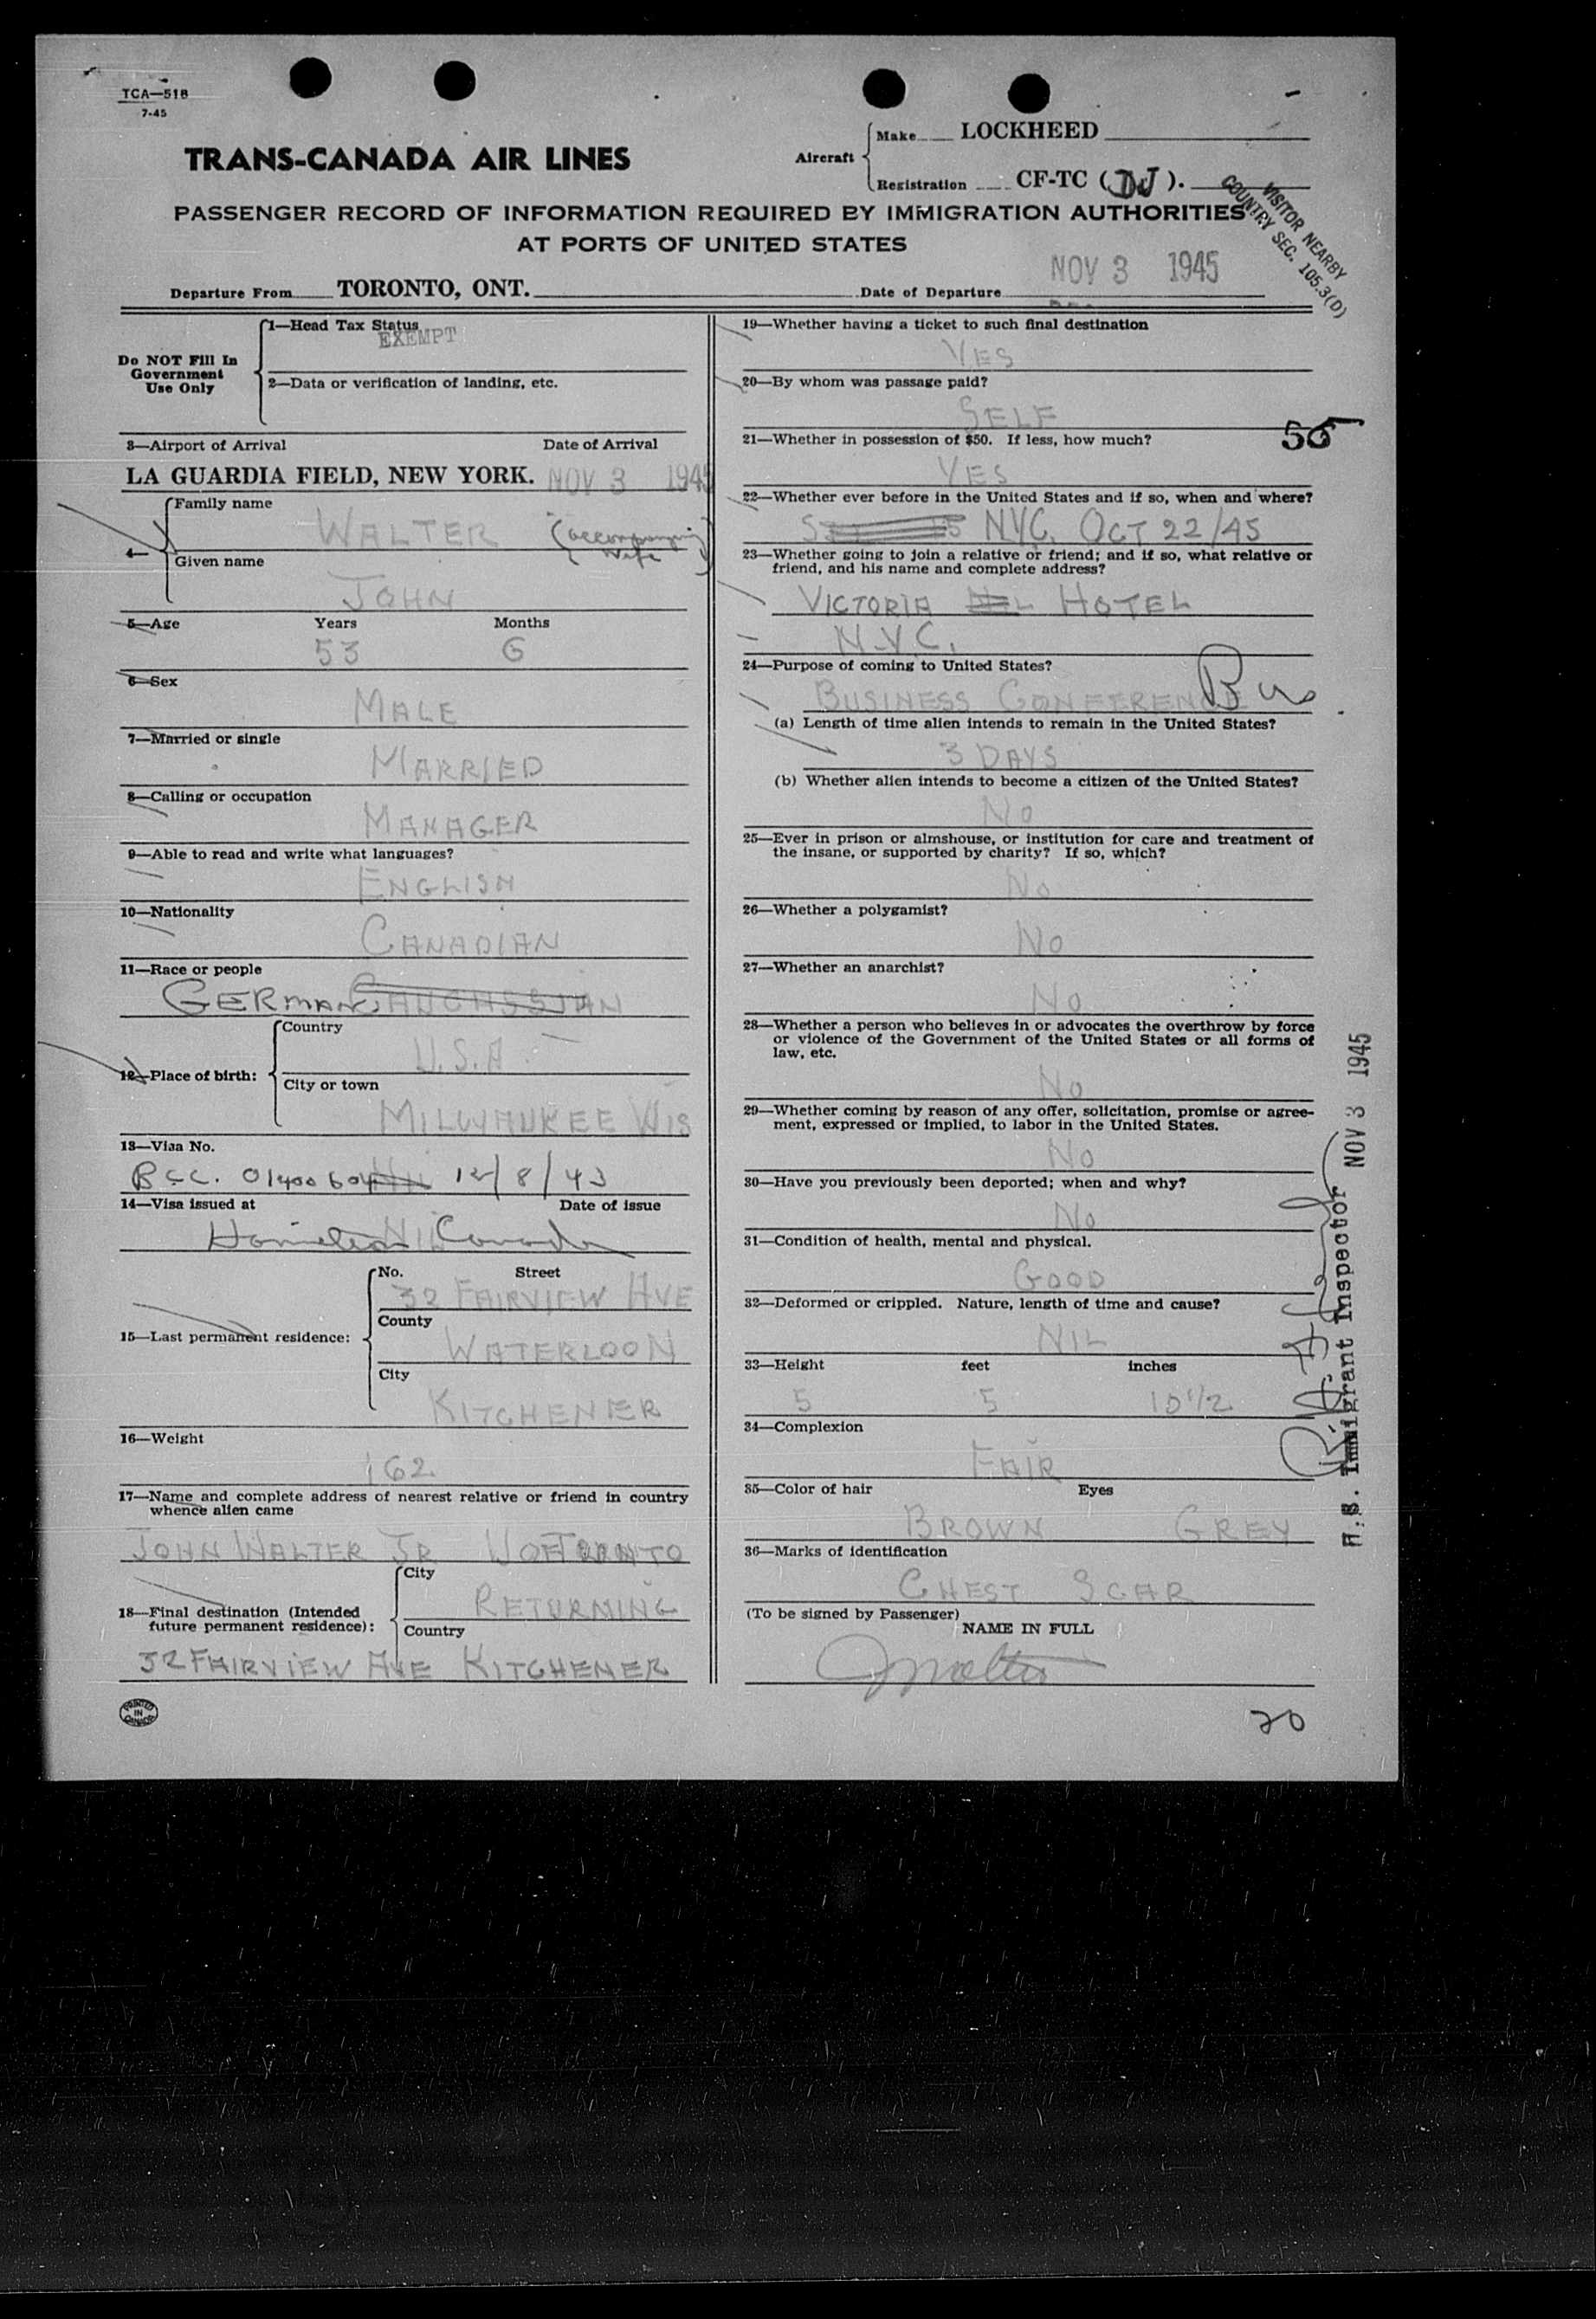 TCA—518
7-45
TRANS-CANADA AIR LINES
Aircraft
Make LOCKHEED
Registration CF-TC (DJ).
VISITOR NEARBY
COUNTRY SEC. 105.3(D)
PASSENGER RECORD OF INFORMATION REQUIRED BY IMMIGRATION AUTHORITIES
AT PORTS OF UNITED STATES
Departure From TORONTO, ONT. Date of Departure NOV 3 1945
Do NOT Fill In
Government
Use Only
1—Head Tax Status
EXEMPT
2—Data or verification of landing, etc.
3—Airport of Arrival Date of Arrival
LA GUARDIA FIELD, NEW YORK. NOV 3 1945
4—
Family name
WALTER (accompanying
wife)
Given name
JOHN
5—Age Years Months
53 6
6—Sex
MALE
7—Married or single
MARRIED
8—Calling or occupation
MANAGER
9—Able to read and write what languages?
ENGLISH
10—Nationality
CANADIAN
11—Race or people
GERMAN
12—Place of birth:
Country
U.S.A.
City or town
MILWAUKEE WIS
13—Visa No.
BCC. 12/8/43
14—Visa issued at Date of issue
Hamilton Canada
15—Last permanent residence:
No. Street
32 FAIRVIEW AVE
County
WATERLOO N
City
KITCHENER
16—Weight
162
17—Name and complete address of nearest relative or friend in country
whence alien came
JOHN WALTER JR U OF TORONTO
18—Final destination (Intended
future permanent residence):
City
RETURNING
Country
32 FAIRVIEW AVE KITCHENER
PRINTED
IN
CANADA
19—Whether having a ticket to such final destination
YES
20—By whom was passage paid?
SELF
21—Whether in possession of $50. If less, how much?
50
YES
22—Whether ever before in the United States and if so, when and where?
NYC. OCT 22/45
23—Whether going to join a relative or friend; and if so, what relative or
friend, and his name and complete address?
VICTORIA HOTEL
N.Y.C.
24—Purpose of coming to United States?
BUSINESS CONFERENCE Bus
(a) Length of time alien intends to remain in the United States?
3 DAYS
(b) Whether alien intends to become a citizen of the United States?
NO
25—Ever in prison or almshouse, or institution for care and treatment of
the insane, or supported by charity? If so, which?
NO
26—Whether a polygamist?
NO
27—Whether an anarchist?
NO
28—Whether a person who believes in or advocates the overthrow by force
or violence of the Government of the United States or all forms of
law, etc.
NO
29—Whether coming by reason of any offer, solicitation, promise or agree-
ment, expressed or implied, to labor in the United States.
NO
30—Have you previously been deported; when and why?
NO
31—Condition of health, mental and physical.
GOOD
32—Deformed or crippled. Nature, length of time and cause?
NIL
33—Height feet inches
5 5 10 1/2
34—Complexion
FAIR
35—Color of hair Eyes
BROWN GREY
36—Marks of identification
CHEST SCAR
(To be signed by Passenger)
NAME IN FULL
J Walter
20
U.S. Immigrant Inspector NOV 3 1945